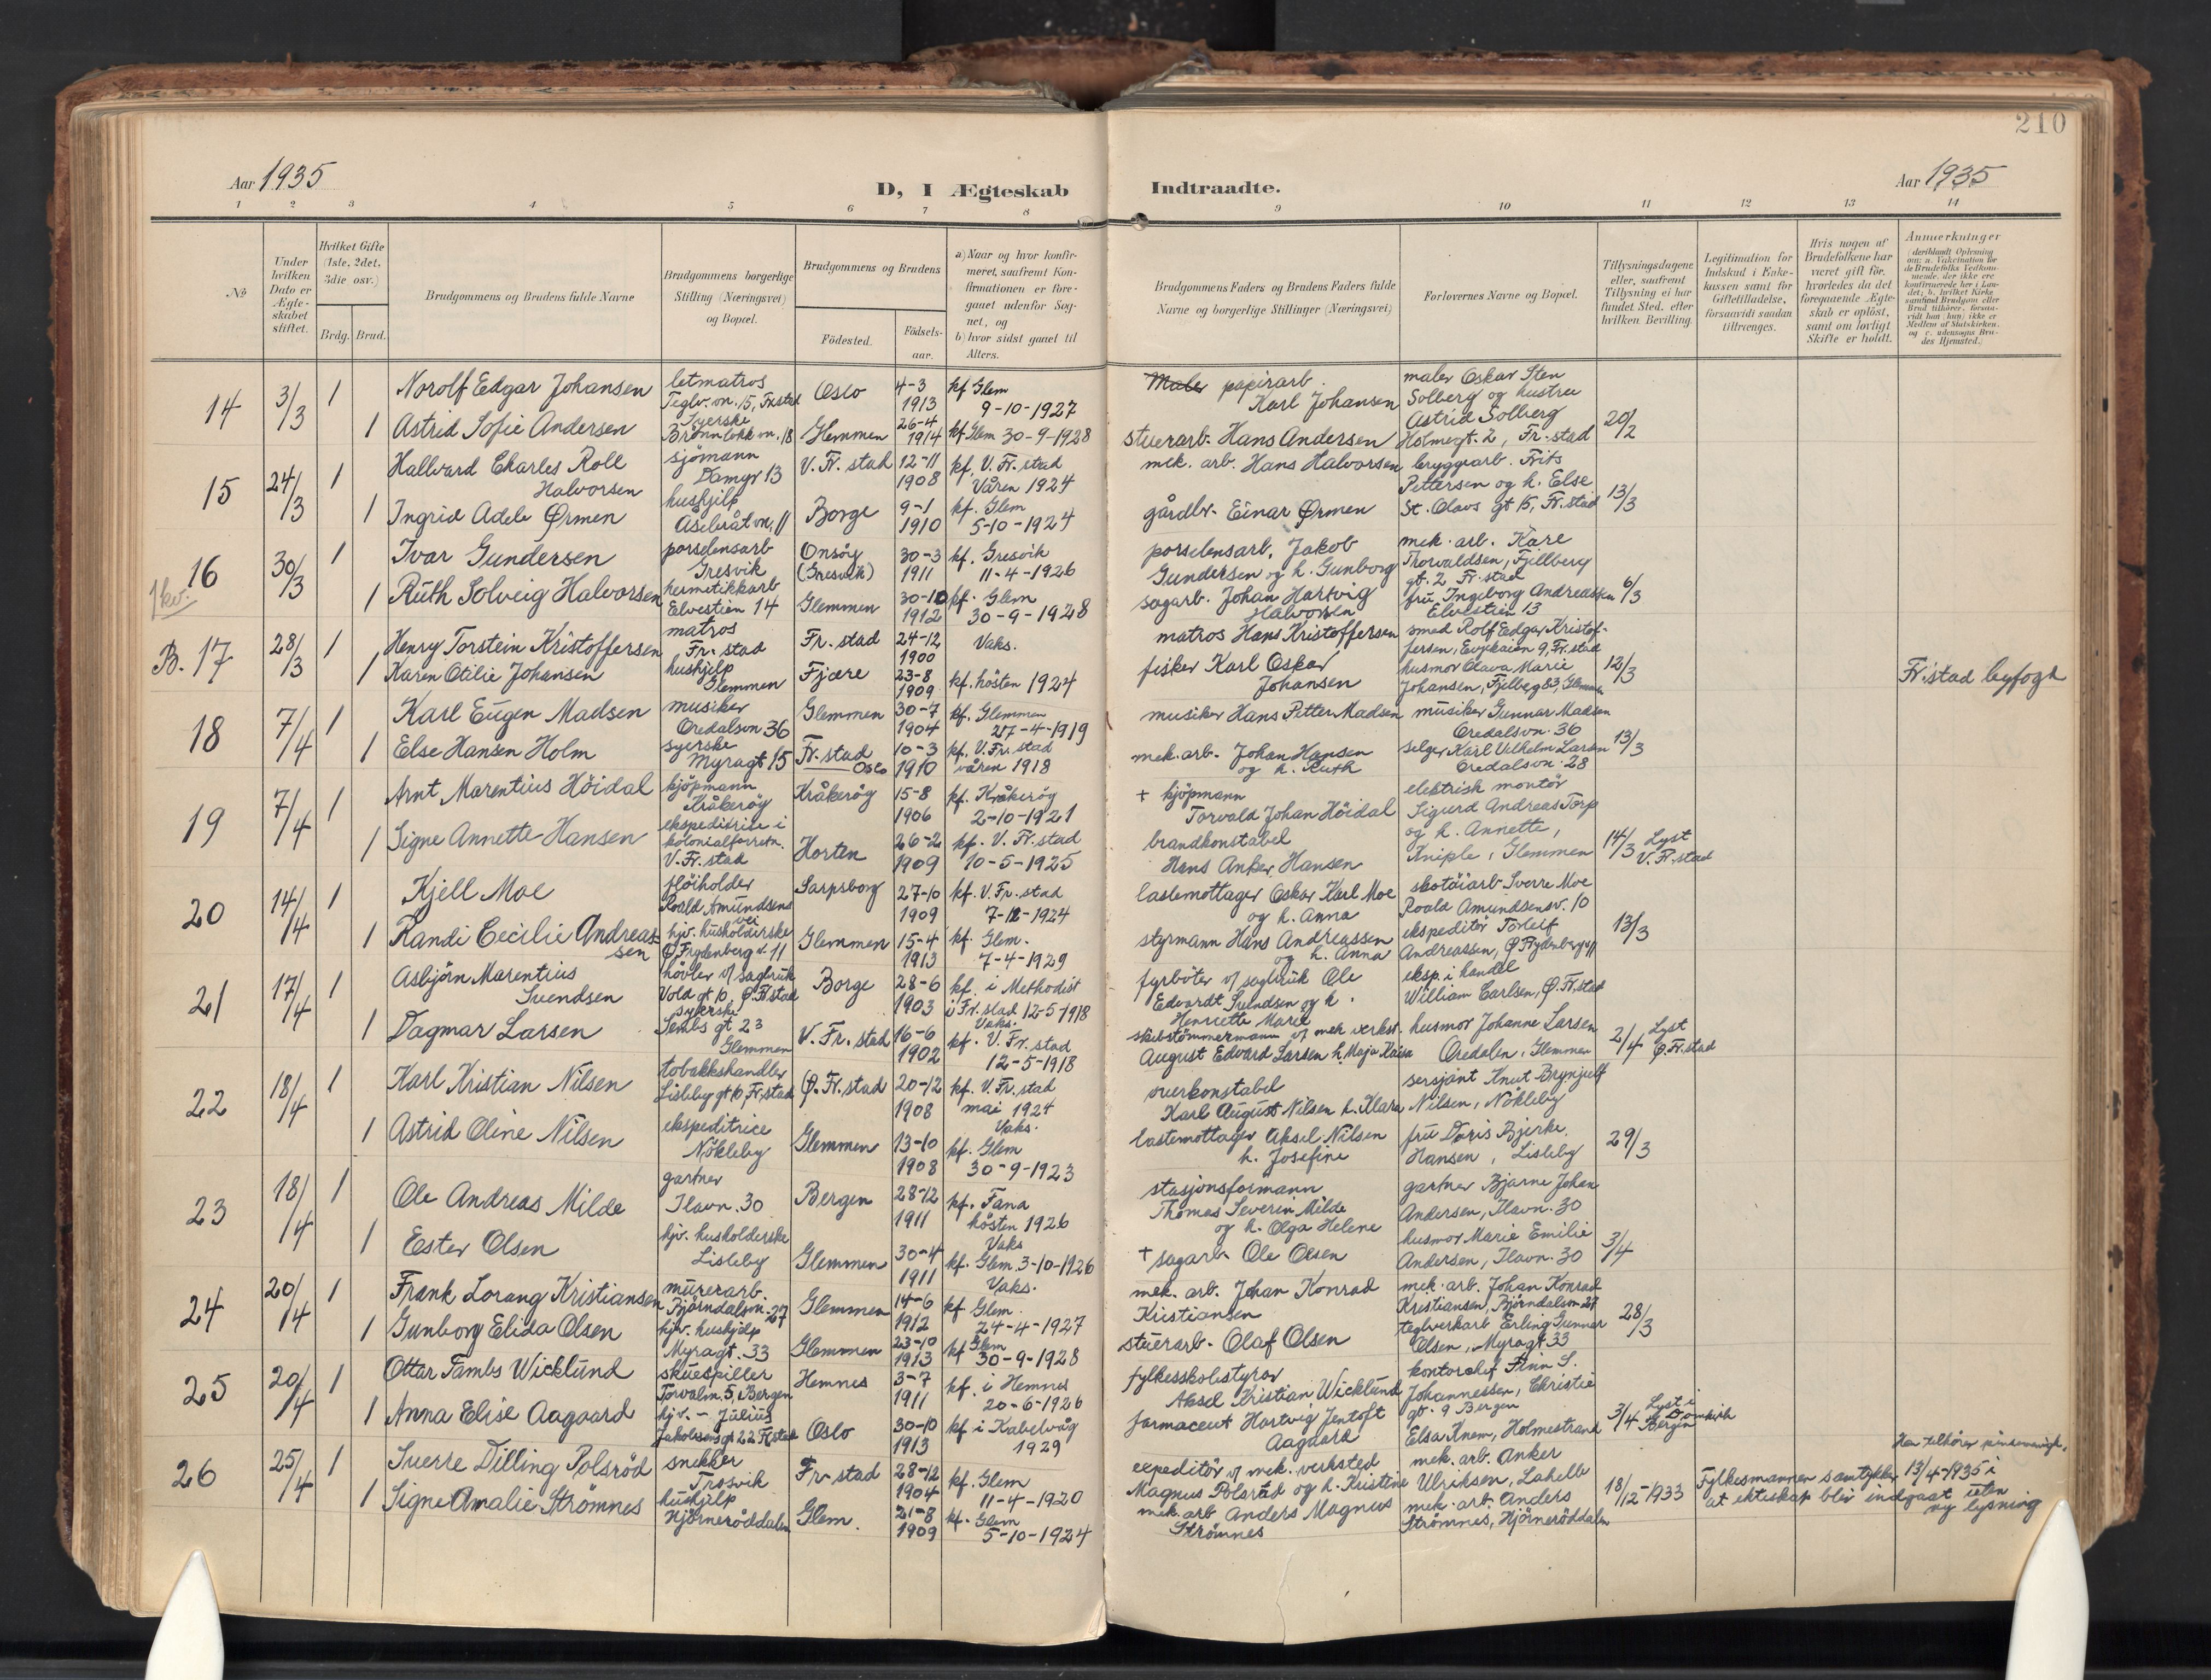 210
Aar 1935
D, I Ægteskab
Indtraadte.
Aar 1935
1 2 3 4 5 6 7 8 9 10 11 12 13 14
No
Under hvilken Dato er Ægteskabet stiftet.
Hvilket Gifte (1ste, 2det, 3die osv.)
Brdg. Brud.
Brudgommens og Brudens fulde Navne
Brudgommens borgerlige Stilling (Næringsvei) og Bopæl.
Brudgommens og Brudens
Fødested.
Fødsels-aar.
a) Naar og hvor konfirmeret, saafremt Konfirmationen er foregaaet udenfor Sognet, og
b) hvor sidst gaaet til Alters.
Brudgommens Faders og Brudens Faders fulde Navne og borgerlige Stillinger (Næringsvei)
Forlovernes Navne og Bopæl.
Tillysningsdagene eller, saafremt Tillysning ei har fundet Sted, efter hvilken Bevilling.
Legitimation for Indskud i Enkekassen samt for Giftetilladelse, forsaavidt saadan tiltrænges.
Hvis nogen af Brudefolkene har været gift før, hvorledes da det foregaaende Ægteskab er opløst, samt om lovligt Skifte er holdt.
Anmerkninger
14 3/3 1 Norolf Edgar Johansen letmatros Teglv.vn. 15, Fr.stad Oslo 4-3 1913 kf Glem 9-10-1927 Maler papirarb. Karl Johansen maler Oskar Sten Solberg og hustru
1 Astrid Sofie Andersen Syerske Brønnløkk vn. 18 Glemmen 26-4 1914 kf Glem 30-9-1928 stuerarb. Hans Andersen Astrid Solberg Holmegt. 2, Fr.stad 20/2
15 24/3 1 Hallvard Charles Roll Halvorsen sjømann Damyr 13 V. Fr. stad 12-11 1908 kf. V. Fr. stad Våren 1924 mek. arb. Hans Halvorsen bryggearb. Frits Pettersen og h. Else
1 Ingrid Adele Ørmen hushjelp Borge 9-1 1910 kf. Glem 5-10-1924 gårdbr. Einar Ørmen St. Olavs gt 15, Fr.stad 13/3
16 30/3 1 Ivar Gundersen porselensarb Gresvik Onsøy (Gresvik) 30-3 1911 kf. Gresvik 11-4-1926 porselensarb. Jakob Gundersen og h. Gunborg mek. arb. Kåre Thorvaldsen, Fjellberg gt. 2 Fr.stad
1 kv.
1 Ruth Solveig Halvorsen hermetikkarb Elvestien 14 Glemmen 30-10 1912 kf. Glem 30-9-1928 sagarb. Johan Hartvig Halvorsen fru Ingeborg Andreassen Elvestien 13 6/3
B. 17 28/3 1 Henry Torstein Kristoffersen matros Fr. stad Fr. stad 24-12 1900 Vaks. matros Hans Kristoffersen smed Rolf Edgar Kristoffersen, 9, Fr.stad
1 Karen Otilie Johansen hushjelp Glemmen Fjære 23-8 1909 kf. høsten 1924 fisker Karl Oskar Johansen husmor Olava Marie Johansen, Fjelberg 83, Glemmen 12/3 Fr.stad byfogd
18 7/4 1 Karl Eugen Madsen musiker Oredalsvn 36 Glemmen 30-7 1904 kf. Glemmen 27-4-1919 musiker Hans Petter Madsen musiker Gunnar Madsen Oredalsvn. 36
1 Else Hansen Holm syerske Myragt 15 Fr. stad Oslo 10-3 1910 kf. V. Fr. stad våren 1918 mek. arb. Johan Hansen og h. Ruth selger Karl Vilhelm Larsen Oredalsvn. 28 13/3
19 7/4 1 Arnt Marentius Höidal kjøpmann Kråkerøy Kråkerøy 15-8 1906 kf. Kråkerøy 2-10-1921 + kjøpmann Torvald Johan Höidal elektrisk montør Sigurd Andreas Torp
1 Signe Annette Hansen ekspeditrise i kolonialforretn. V. Fr. stad Horten 26-2 1909 kf. V. Fr. stad 10-5-1925 brandkonstabel Hans Anker Hansen og h. Annette, Kniple, Glemmen 14/3 Lyst V. Fr.stad
20 14/4 1 Kjell Moe Roald Amundsens vei Sarpsborg 27-10 1909 kf. V. Fr. stad lastemottager Oskar Karl Moe og h. Anna skotøiarb. Sverre Moe Roald Amundsensv. 10
1 Randi Cecilie Andreassen hjv. husholderske Ø. Frydenberg v. 11 Glemmen 15-4 1913 kf. Glem. 7-4-1929 styrmann Hans Andreassen og h. Anna ekspeditør Torleif Andreassen, Ø Frydenberg v 11 13/3
21 17/4 1 Asbjørn Marentius Svendsen høvler v/ sagbruk Vold gt 10, Ø. Fr.stad Borge 28-6 1903 kf. i Methodist i Fr. stad 12-5-1918 Vaks. fyrbøter v/ sagbruk Ole Edvardt Svendsen og h. Henriette Marie eksp. i handel William Carlsen, Ø. Fr.stad
1 Dagmar Larsen syerske Sembs gt 23 Glemmen V. Fr. stad 16-6 1902 kf. V. Fr. stad 12-5-1918 skibstømmermann v/ mek verkst. August Edvard Larsen h. Maja Kaisa husmor Johanne Larsen Oredalen, Glemmen 2/4 Lyst Ø. Fr. stad
22 18/4 1 Karl Kristian Nilsen tobakkshandler Lisleby gt 10, Fr.stad Ø. Fr. stad 20-12 1908 kf. V. Fr. stad mai 1924 Vaks. overkonstabel Karl August Nilsen h. Klara sersjant Knut Brynjulf Nilsen, Nökleby
1 Astrid Oline Nilsen ekspeditrice Nökleby Glemmen 13-10 1908 kf. Glem 30-9-1923 lastemottager Aksel Nilsen h. Josefine fru Doris Bjerke Hansen, Lisleby 29/3
23 18/4 1 Ole Andreas Milde gartner Ilavn. 30 Bergen 28-12 1911 kf. Fana høsten 1926 Vaks stasjonsformann Thomas Severin Milde og h. Olga Helene gartner Bjarne Johan Andersen, Ilavn. 30
1 Ester Olsen hjv. husholderske Lisleby Glemmen 30-4 1911 kf. Glem. 3-10-1926 Vaks. + sagarb. Ole Olsen husmor Marie Emilie Andersen, Ilavn. 30 3/4
24 20/4 1 Frank Lorang Kristiansen murerarb. Bjørndalsvn. 27 Glemmen 14-6 1912 kf Glem. 24-4-1927 mek. arb. Johan Konrad Kristiansen mek. arb. Johan Konrad Kristiansen, Bjørndalsvn 27
1 Gunborg Elida Olsen hjv. hushjelp Myragt. 33 Glemmen 23-10 1913 kf Glem 30-9-1928 stuerarb. Olaf Olsen teglverkarb Erling Gunnar Olsen, Myragt 33 28/3
25 20/4 1 Ottar Tambs Wicklund skuespiller Torvalm. 5, Bergen Hemnes 3-7 1911 kf. i Hemnes 20-6-1926 fylkesskolestyrer Aksel Kristian Wicklund kontorchef Finn S. Johannessen, Christie gt. 9 Bergen
1 Anna Elise Aagaard hjv. - Julius Jakobsens gt 22 Fr.stad Oslo 30-10 1913 kf i Kabelvåg 1929 farmaceut Hartvig Jentoft Aagaard Elsa Knem, Holmestrand 3/4 Lyst i Domkirk Bergen
26 25/4 1 Sverre Dilling Polsröd snekker Trosvik Fr. stad 28-12 1904 kf. Glem 11-4-1920 expeditör v/ mek. verksted Magnus Polsröd og h. Kristine mek. arb. Anker Ulriksen, Lahelle
1 Signe Amalie Strømnes hushjelp Hjørnerøddalen Glem. 21-8 1909 kf. Glem 5-10-1924 mek. arb Anders Magnus Strømnes mek. arb. Anders Strømnes, Hjørnerøddalen 18/12-1933 Fylkesmannen samtykker 13/4-1935 i at ekteskap blir indgaat uten ny lysning